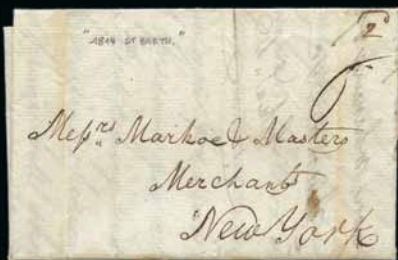 "1814 ST BARTH."
2
6
Meſsrs Markoe & Masters
Merchants
New York